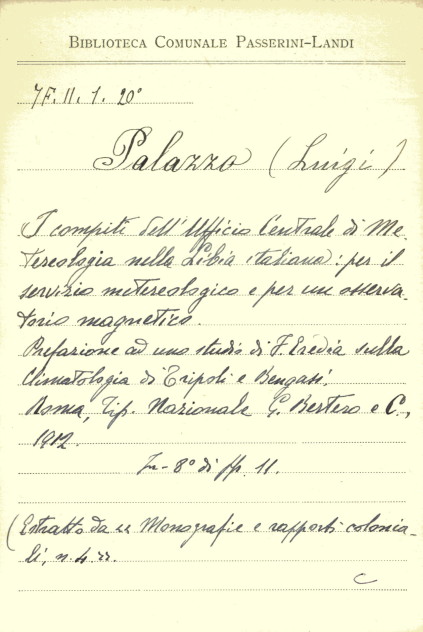 BIBLIOTECA COMUNALE PASSERINI-LANDI
7F. II. 1. 20°
Palazzo (Luigi)
I compiti dell'Ufficio Centrale di Me-
tereologia nella Libia italiana: per il
servizio metereologico e per un osserva-
torio magnetico.
Prefazione ad uno studio di F. Eredia sulla
Climatologia di Tripoli e Bengasi.
Roma, Tip. Nazionale G. Bertero e C.,
1912.
In-8° di pp. 11.
(Estratto da "Monografie e rapporti colonia-
li, n. 4".
C